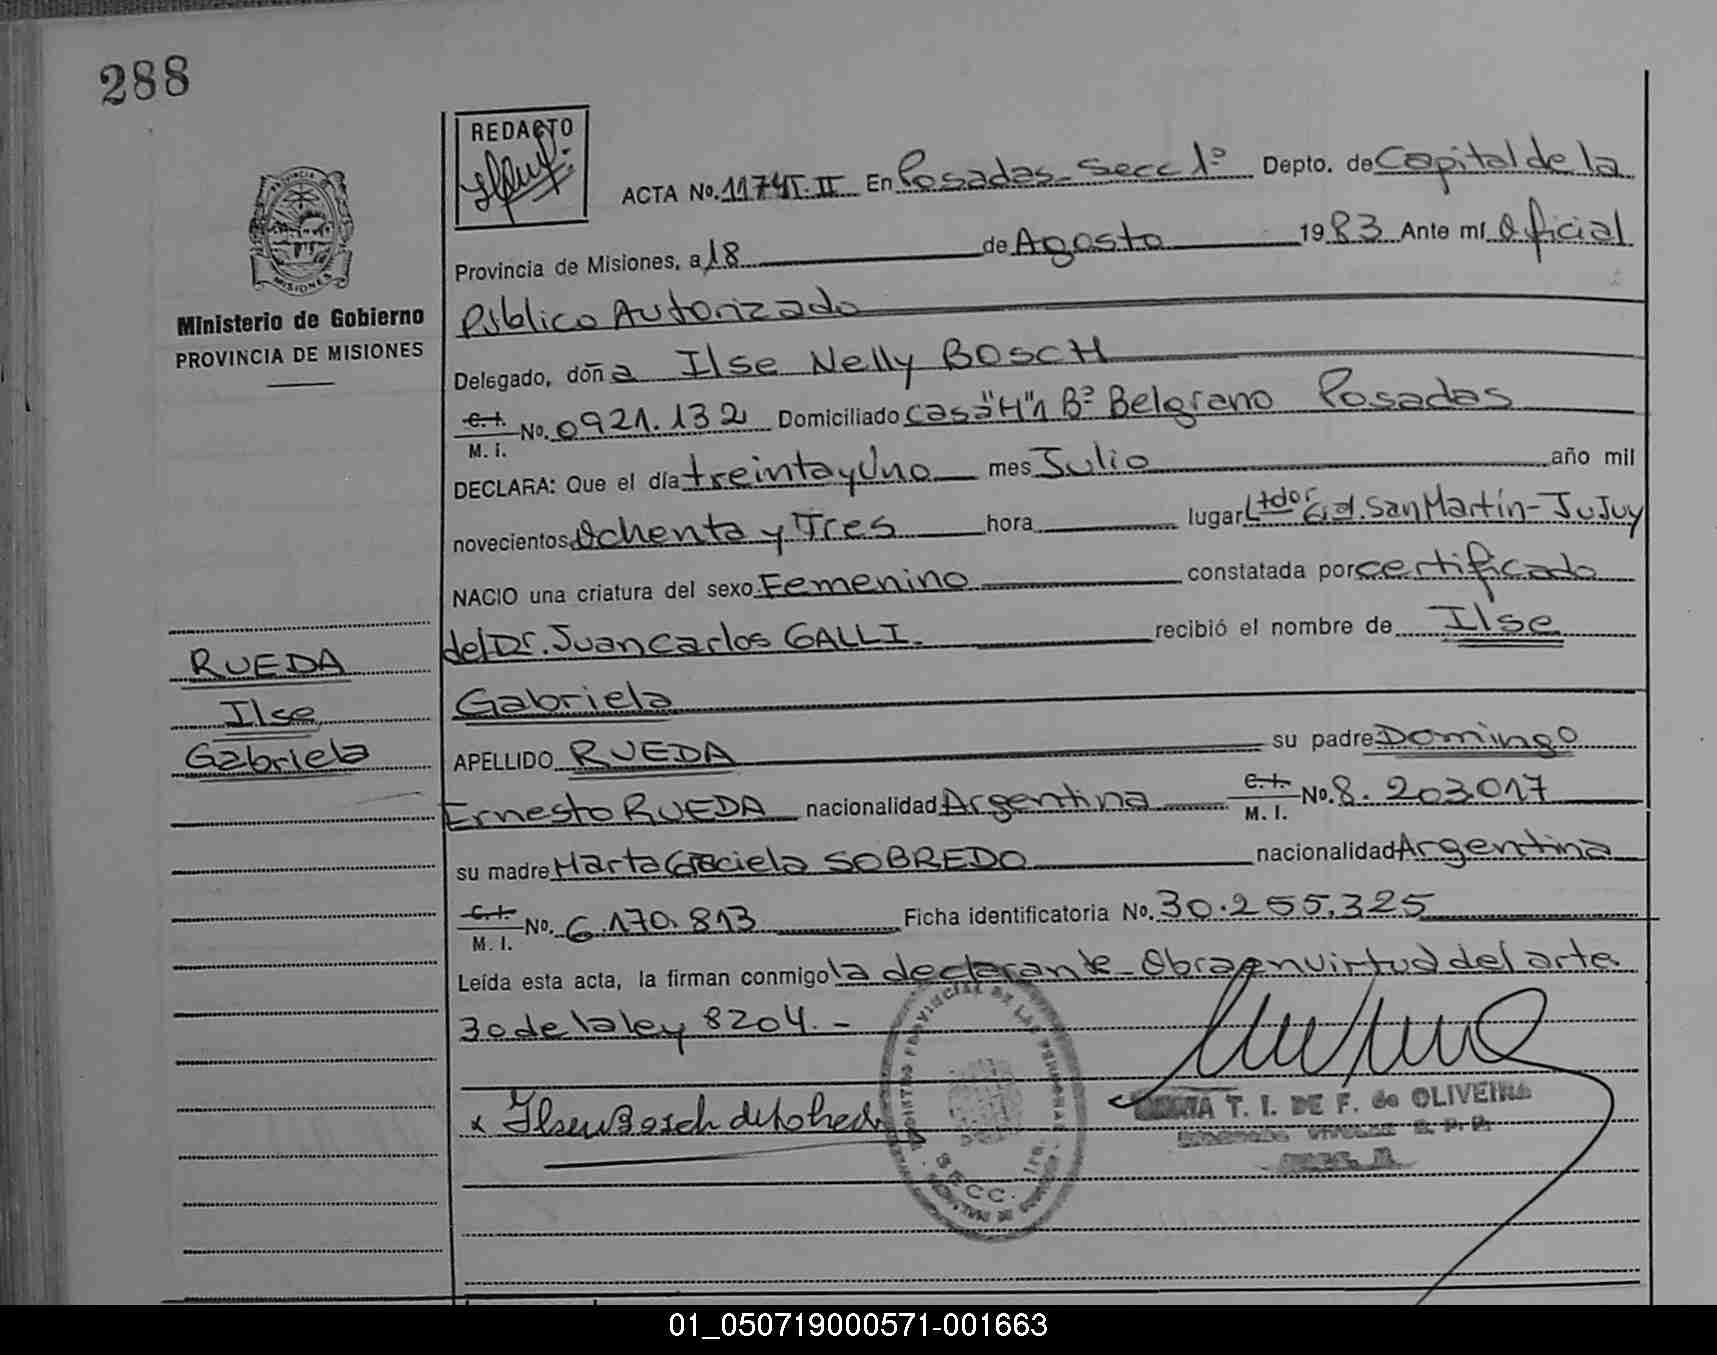 288
REDACTO
ACTA No. 1174 T. II En Posadas- Secc 1º Depto. de Capital de la
Provincia de Misiones, a 18 de Agosto 1983 Ante mí Oficial
Público Autorizado
Delegado, doña Ilse Nelly BOSCH
C.I. / M. I. No. 0921.132 Domiciliado Casa "H" 1 Bº Belgrano Posadas
DECLARA: Que el día treinta y Uno mes Julio año mil
novecientos Ochenta y Tres hora lugar Ltdor Gral. San Martín - Jujuy
NACIO una criatura del sexo Femenino constatada por certificado
del Dr. Juan Carlos GALLI. recibió el nombre de Ilse
Gabriela
APELLIDO RUEDA su padre Domingo
Ernesto RUEDA nacionalidad Argentina C.I. / M. I. No. 8.203.017
su madre Marta Graciela SOBREDO nacionalidad Argentina
C.I. / M. I. No. 6.170.813 Ficha identificatoria No. 30.255.325
Leída esta acta, la firman conmigo la declarante- Obra en virtud del arte.
30 de la ley 8204. -
x Ilse N Bosch de
T. I. DE F. de OLIVEIRA
PROVINCIAL DE LAS PERSONAS
SECC. 1ª
PROVINCIA DE
MISIONES
Ministerio de Gobierno
PROVINCIA DE MISIONES
RUEDA
Ilse
Gabriela
01_050719000571-001663